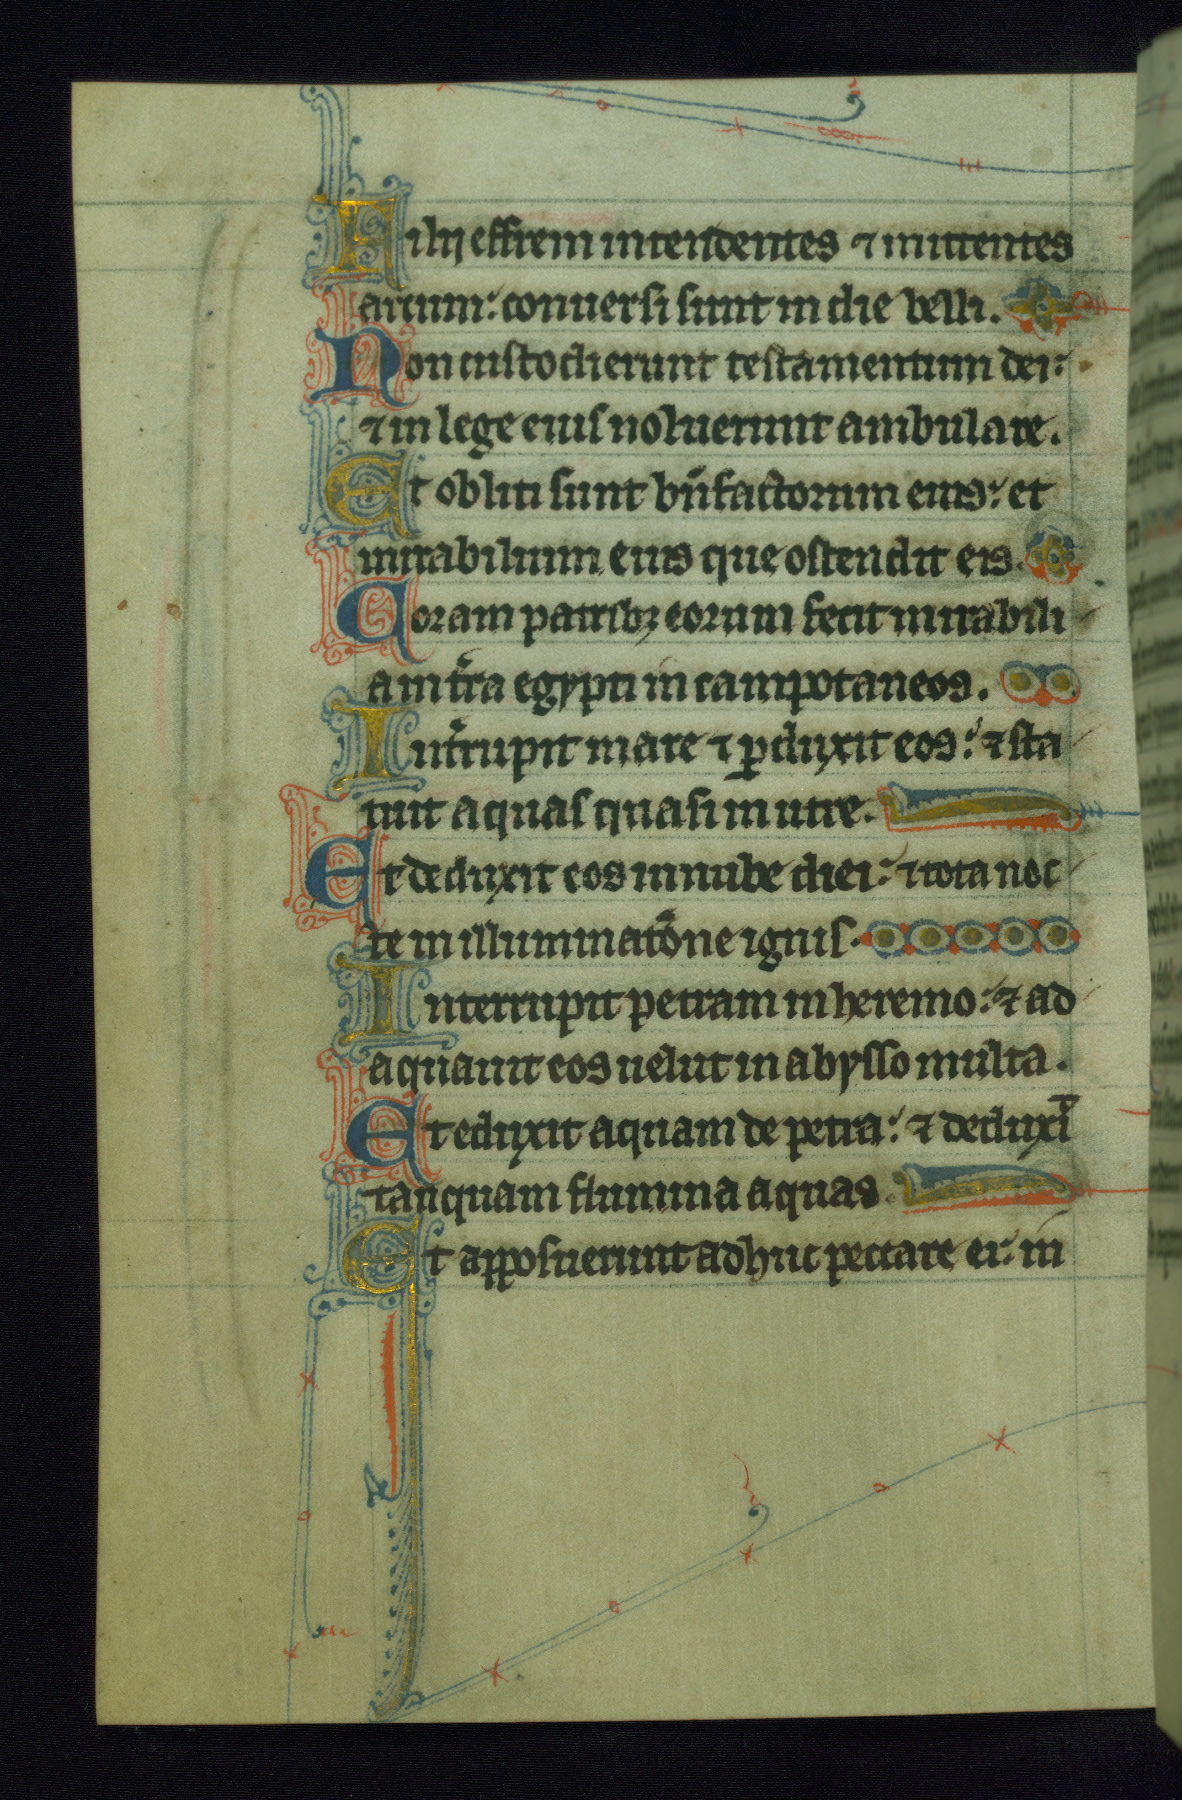 Filij effrem intendentes ⁊ mittentes
arcum: conuersi sunt in die belli.
Non custodierunt testamentum dei:
⁊ in lege eius noluerunt ambulare.
Et obliti sunt bn̄factorum eius: et
mirabilium eius que ostendit eis.
Coram patribꝫ eorum fecit mirabili
a in t̄ra egypti in campotaneos.
Int̄rupit mare ⁊ ꝑduxit eos: ⁊ sta
tuit aquas quasi in utre.
Et deduxit eos in nube diei: ⁊ tota noc
te in illuminatōne ignis.
Interrupit petram in heremo: ⁊ ad
aquauit eos uelut in abysso multa.
Et eduxit aquam de petra: ⁊ deduxī
tanquam flumina aquas.
Et apposuerunt adhuc peccare ei: in